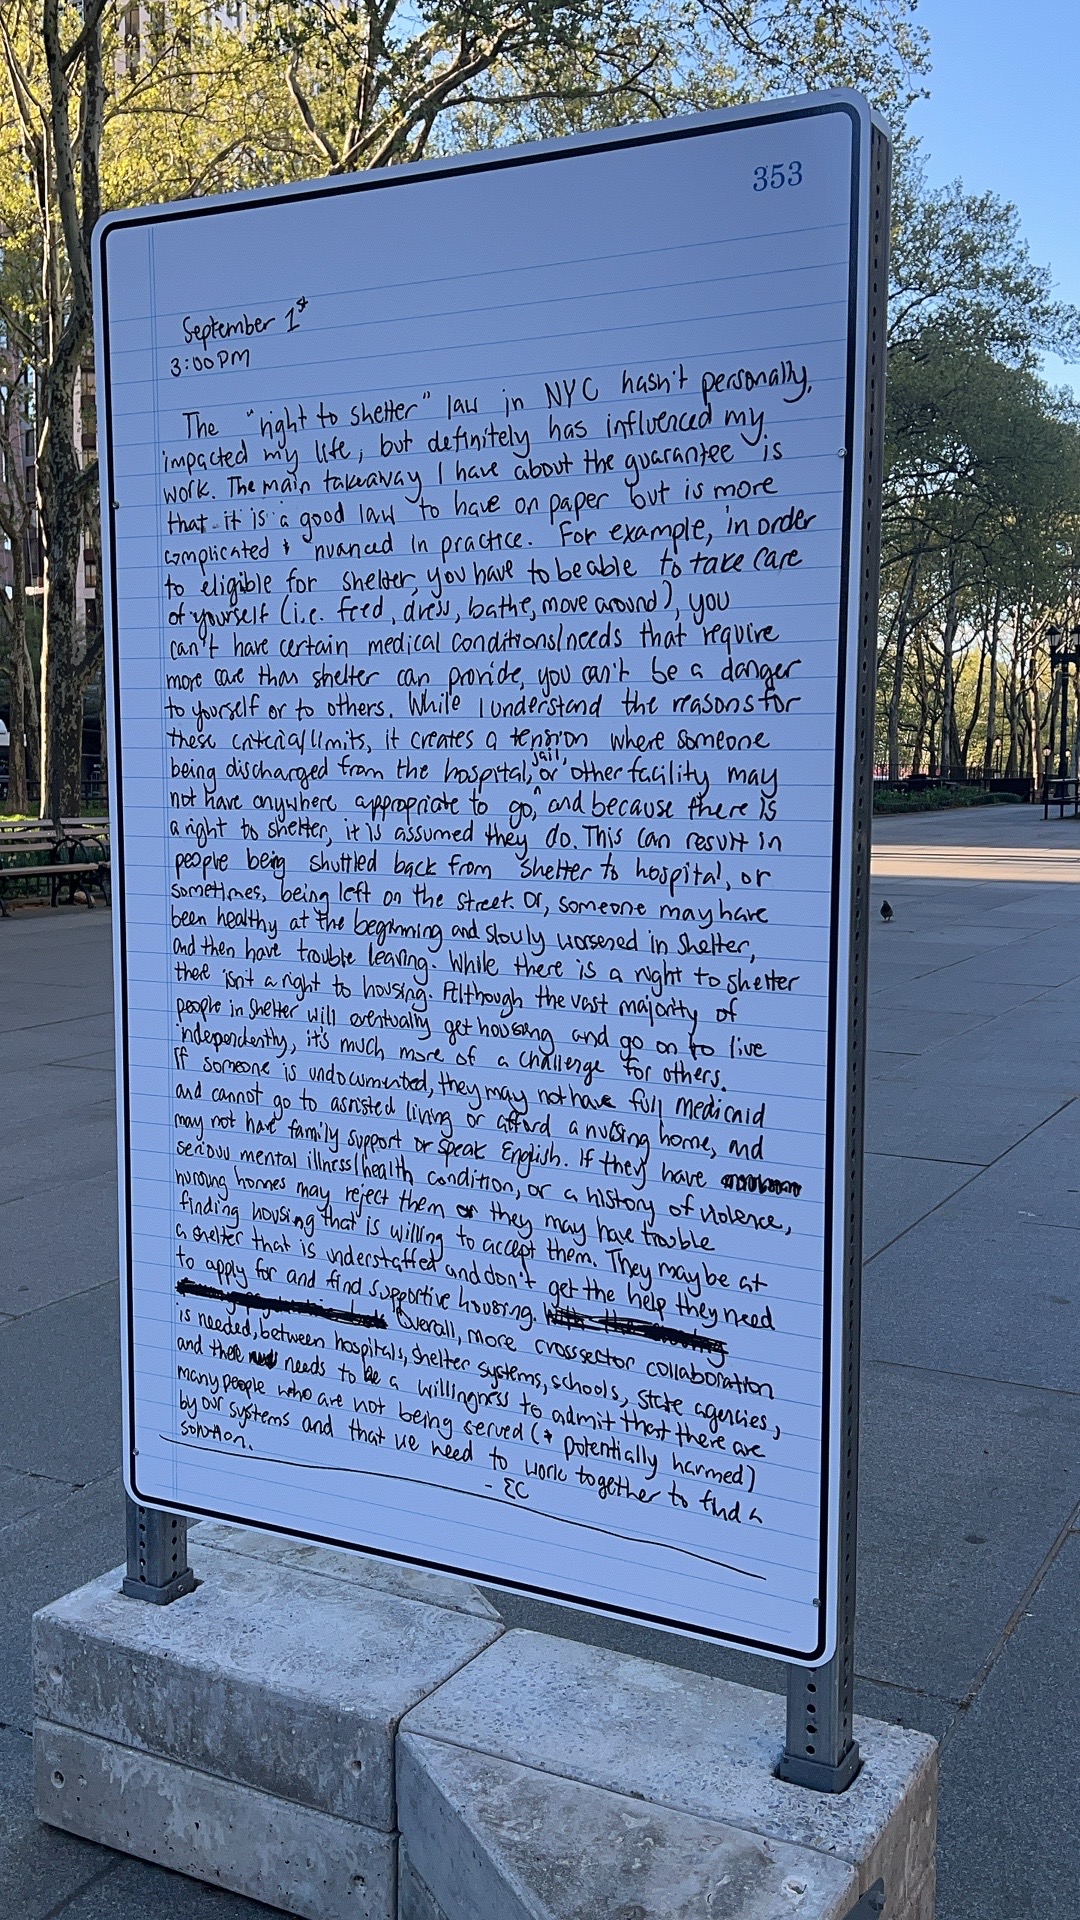 353
September 1st
3:00 PM
The "right to shelter" law in NYC hasn't personally,
impacted my life, but definitely has influenced my
work. The main takeaway I have about the guarantee is
that it is a good law to have on paper but is more
complicated & nuanced in practice. For example, in order
to eligible for shelter, you have to be able to take care
of yourself (i.e. feed, dress, bathe, move around), you
can't have certain medical conditions/needs that require
more care than shelter can provide, you can't be a danger
to yourself or to others. While I understand the reasons for
these criteria/limits, it creates a tension where someone
being discharged from the hospital, jail, or other facility may
not have anywhere appropriate to go, and because there is
a right to shelter, it is assumed they do. This can result in
people being shuttled back from shelter to hospital, or
sometimes, being left on the street. Or, someone may have
been healthy at the beginning and slowly worsened in shelter,
and then have trouble leaving. While there is a right to shelter
there isn't a right to housing. Although the vast majority of
people in shelter will eventually get housing and go on to live
independently, it's much more of a challenge for others.
If someone is undocumented, they may not have full medicaid
and cannot go to assisted living or afford a nursing home, and
may not have family support or speak English. If they have
serious mental illness/health condition, or a history of violence,
nursing homes may reject them or they may have trouble
finding housing that is willing to accept them. They may be at
a shelter that is understaffed and don't get the help they need
to apply for and find supportive housing.
Overall, more crosssector collaboration
is needed, between hospitals, shelter systems, schools, state agencies,
and there needs to be a willingness to admit that there are
many people who are not being served (& potentially harmed)
by our systems and that we need to work together to find a
solution.
- EC